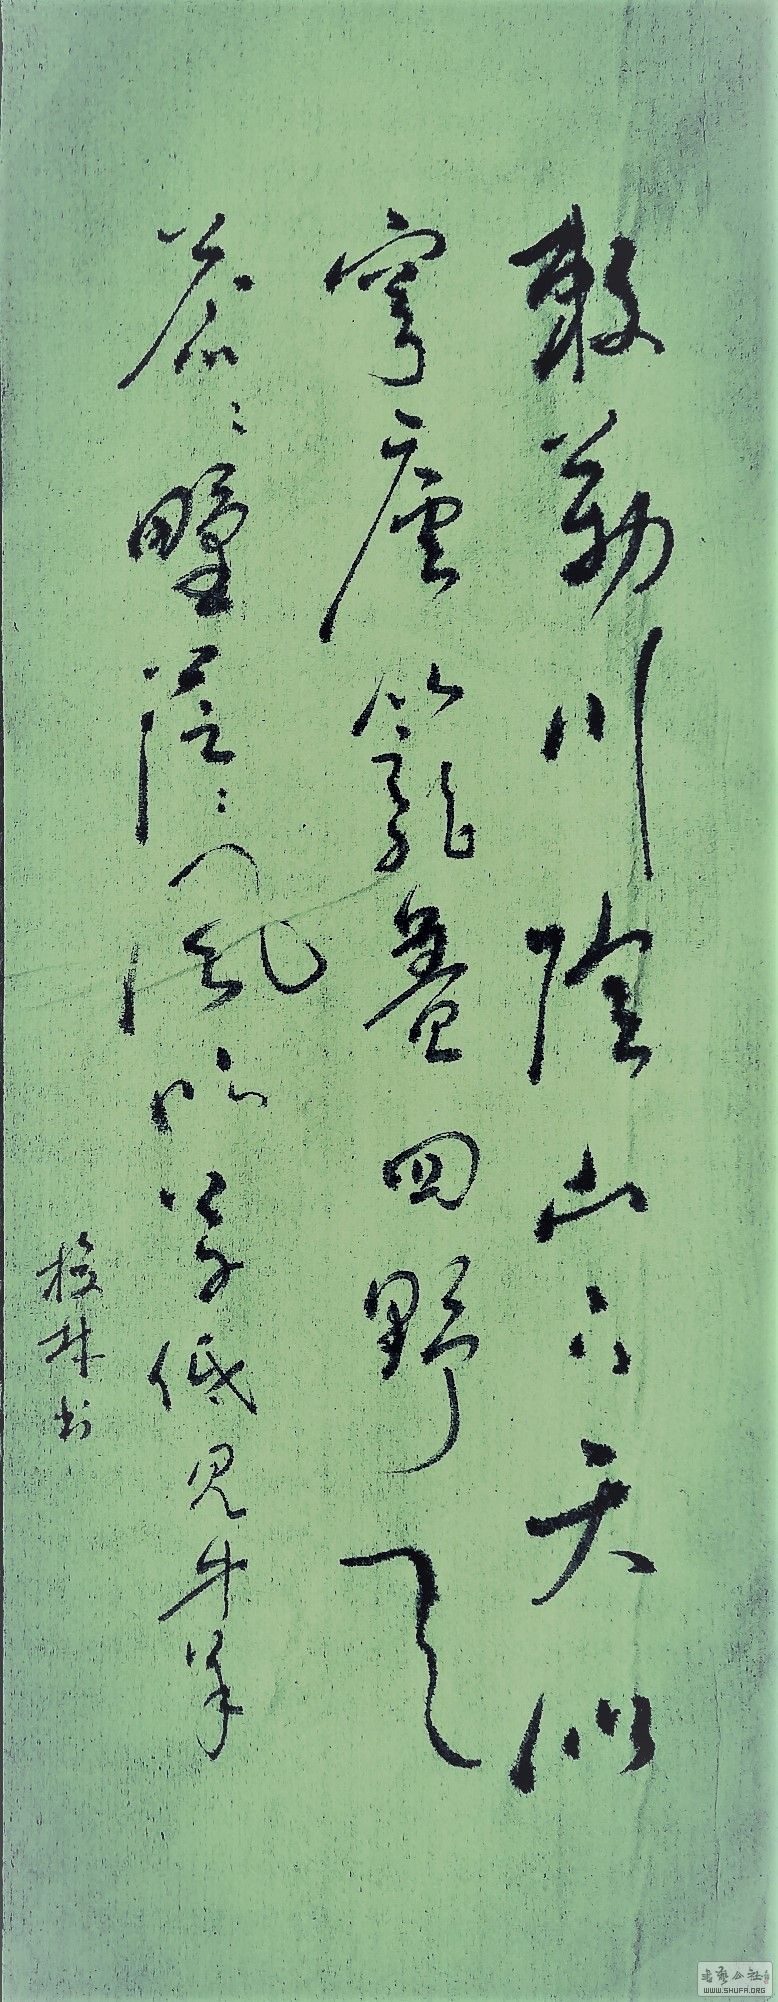 敕勒川陰山下天似
穹廬籠蓋四野天
蒼〻野茫〻風吹草低見牛羊
林书
书艺公社
WWW.SHUFA.ORG